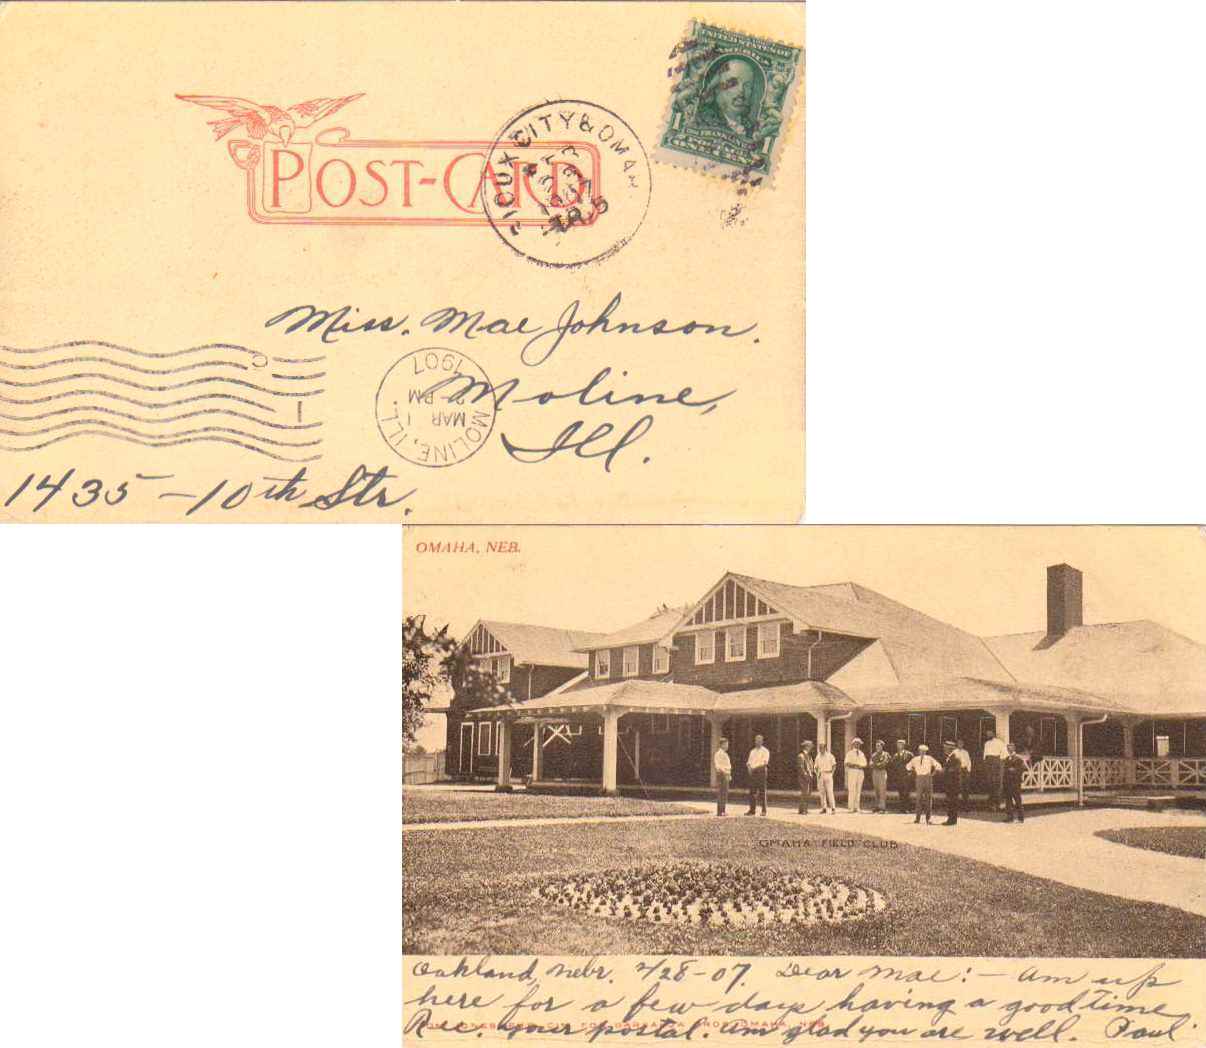 UNITED STATES OF
AMERICA
1 1
FRANKLIN
ONE CENT
POST-CARD
SIOUX CITY & OMAH
1907
TR. 5
Miss. Mae Johnson.
MOLINE, ILL.
MAR 1
PM
1907
Moline,
Ill.
1435 - 10th Str.
OMAHA, NEB.
OMAHA FIELD CLUB
Oakland, Nebr. 2/28-07. Dear Mae: - Am up
here for a few days having a good time
Rec. your postal. Am glad you are well. Paul
OMAHA, NEB.